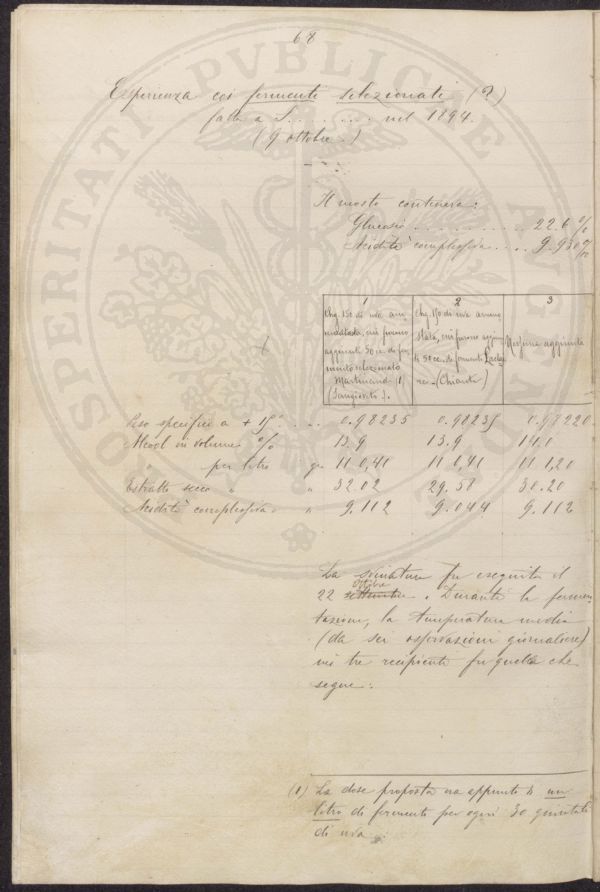 68
Esperienza coi fermenti selezionati (?)
fatta a S........ nel 1894.
(9 ottobre.)
Il mosto conteneva:
Glucosio .......... 22.6 %
Acidità complessiva .... 9.930 ‰
1
Chg. 150 di uva am
mostata, cui furono
aggiunti 50 cc. di fer
mento selezionato
Martinand (1)
(Sangiovito).
2
Chg. 150 di uva ammo
stata, cui furono aggiun
ti 50 cc. di fermenti
(Chianti)
3
Nessuna aggiunta
Peso specifico a + 15° .. 0.98235 0.98235 0.98220
Alcool in volume % 13.9 13.9 14.0
per litro gr. 110,41 110,41 111,20
Estratto secco " " 32.02 29.58 30.20
Acidità complessiva " " 9.112 9.044 9.112
La svinatura fu eseguita il
ottobre
22 settembre. Durante la fermen
tazione, la temperatura media
(da sei osservazioni giornaliere)
nei tre recipienti fu quella che
segue:
(1) La dose proposta era appunto di un
litro di fermento per ogni 30 quintali
di uva.
PROSPERITATI PVBLICAE AVGENDAE